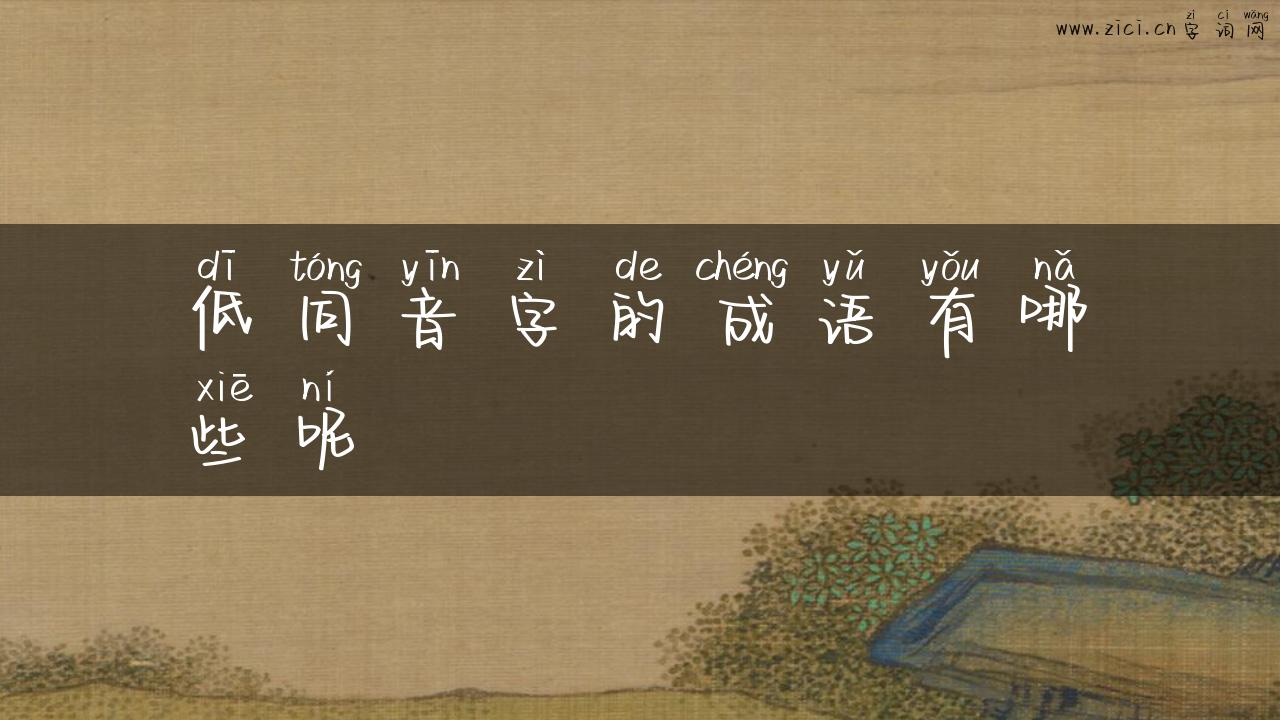 zì cí wǎng
www.zici.cn 字词网
dī tóng yīn zì de chéng yǔ yǒu nǎ
低同音字的成语有哪
xiē ní
些呢